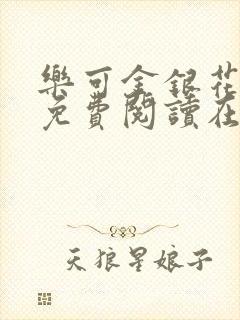 樂可金銀花
免費閱讀在
天狼星娘子